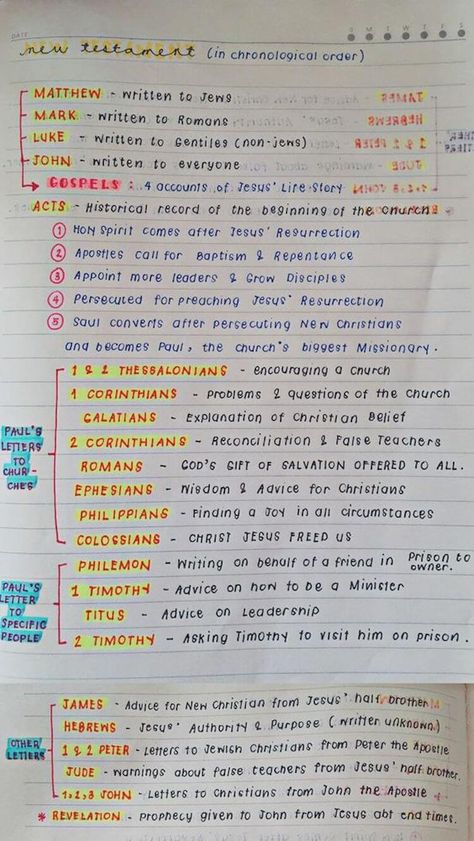 DATE
S M T W T F S
new testament (in chronological order)
MATTHEW - written to Jews
MARK - written to Romans
LUKE - written to Gentiles (non-jews)
JOHN - written to everyone
GOSPELS : 4 accounts of Jesus' Life Story
ACTS - Historical record of the beginning of the church
① Holy Spirit comes after Jesus' Resurrection
② Apostles call for Baptism & Repentance
③ Appoint more leaders & Grow Disciples
④ Persecuted for preaching Jesus' Resurrection
⑤ Saul converts after persecuting New Christians
and becomes Paul, the church's biggest Missionary.
PAUL'S LETTERS TO CHUR-CHES
1 & 2 THESSALONIANS - encouraging a church
1 CORINTHIANS - Problems & questions of the church
GALATIANS - Explanation of Christian Belief
2 CORINTHIANS - Reconciliation & False Teachers
ROMANS - GOD'S GIFT OF SALVATION OFFERED TO ALL.
EPHESIANS - Wisdom & Advice for Christians
PHILIPPIANS - Finding a Joy in all circumstances
COLOSSIANS - CHRIST JESUS FREED US
PAUL'S LETTER TO SPECIFIC PEOPLE
PHILEMON - Writing on behalf of a friend in Prison to owner.
1 TIMOTHY - Advice on how to be a Minister
TITUS - Advice on Leadership
2 TIMOTHY - Asking Timothy to visit him on prison.
OTHER LETTERS
JAMES - Advice for New Christian from Jesus' half brother
HEBREWS - Jesus' Authority & Purpose (writer unknown)
1 & 2 PETER - Letters to Jewish Christians from Peter the Apostle
JUDE - Warnings about false teachers from Jesus' half brother.
1, 2, 3 JOHN - Letters to Christians from John the Apostle
* REVELATION - prophecy given to John from Jesus abt end times.